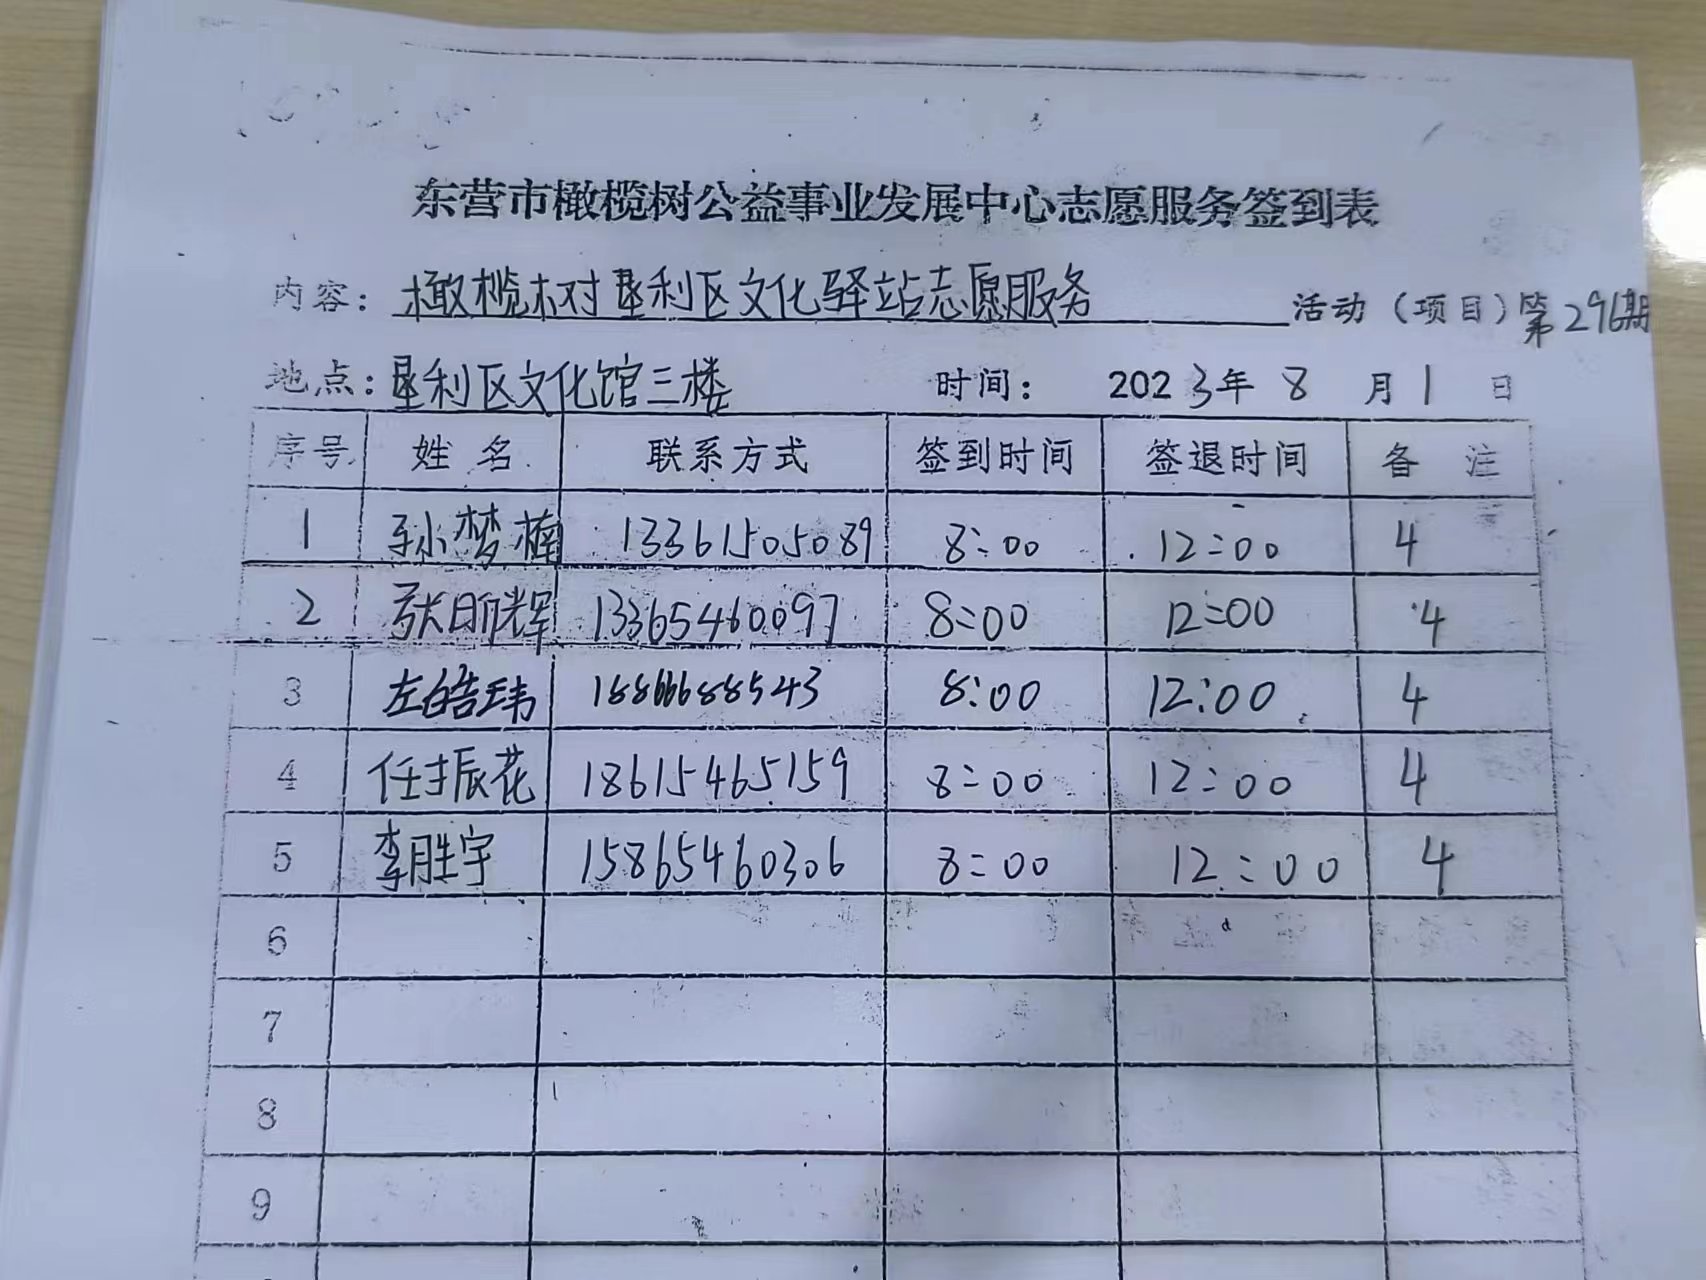 东营市橄榄树公益事业发展中心志愿服务签到表
内容：橄榄树对垦利区文化驿站志愿服务 活动（项目）第296期
地点：垦利区文化馆三楼 时间： 2023年 8 月 1 日
序号 姓名 联系方式 签到时间 签退时间 备注
1 孙梦楠 13361505089 8:00 12:00 4
2 张昕辉 13365460097 8:00 12:00 4
3 左皓玮 18866688543 8:00 12:00 4
4 任振花 18615465159 8:00 12:00 4
5 李胜宇 15865460306 8:00 12:00 4
6
7
8
9